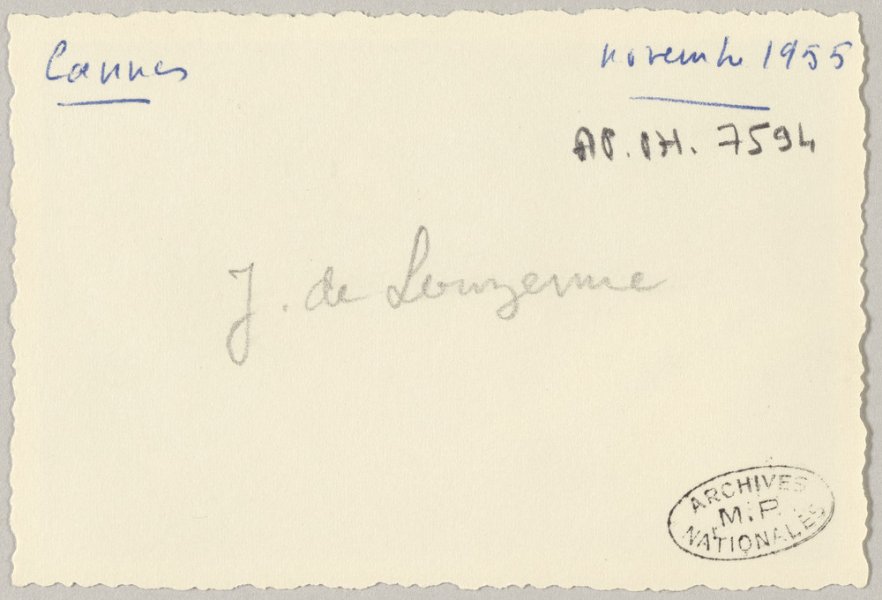 Cannes
novembre 1955
AP.PH. 7594
J. de
ARCHIVES
M.P.
NATIONALES